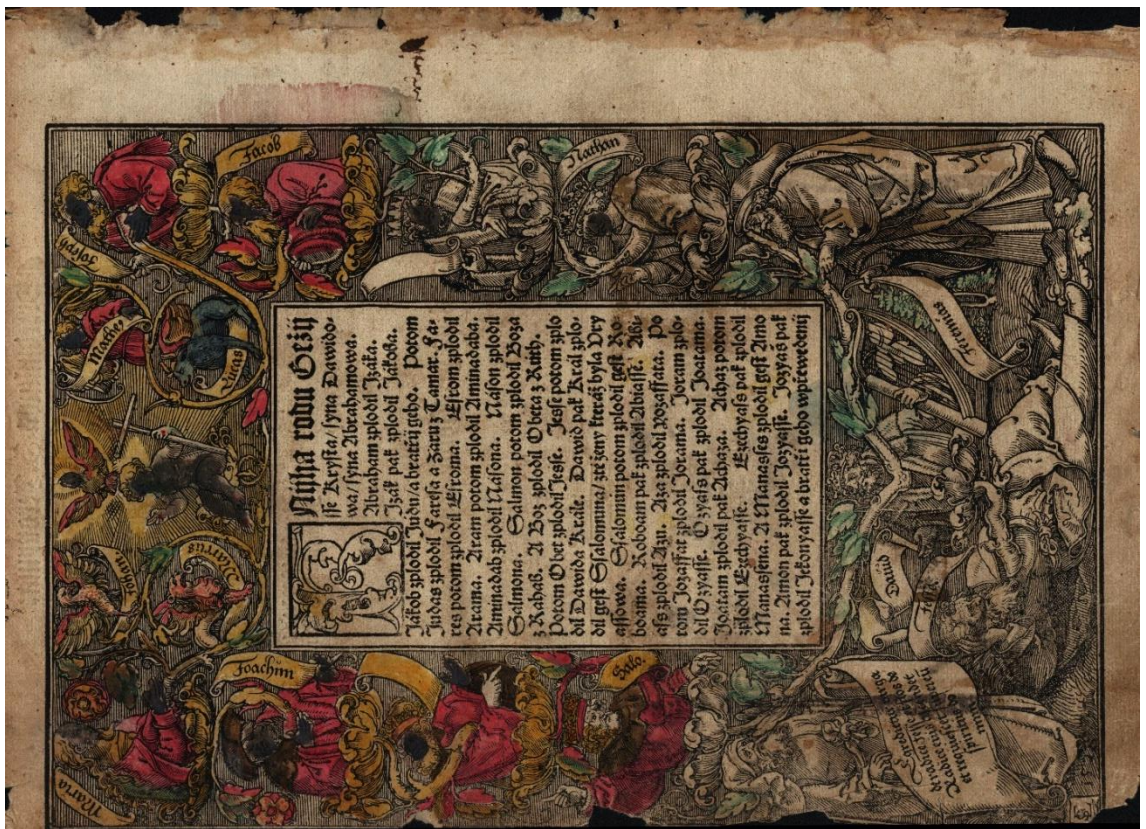 Maria
Johan.
Marcus
Mathes
Lucas
Joseph
Jacob
Joachim
KNiha rodu Gežij
sse Krysta / syna Dawido-
wa / syna Abrahamowa.
Abraham zplodil Izáka.
Izák pak zplodil Jákoba.
Jákob zplodil Judu / a bratřij geho. Potom
Judas zplodil Faresa a Záru z Tamar. Fa-
res potom zplodil Esroma. Esrom zplodil
Arama. Aram potom zplodil Aminadaba.
Aminadab zplodil Nasona. Nason zplodil
Salmona. Salmon potom zplodil Boza
z Rahab. A Boz zplodil Obeta z Ruth.
Potom Obet zplodil Jesse. Jesse potom zplo
dil Dawida Krále. Dawid pak Král zplo-
dil gest Ssalomuna / z té ženy kteráž byla Ury
assowa. Ssalomun potom zplodil gest Ro-
boama. Roboam pak zplodil Abiasse. Abi-
ass zplodil Azu. Aza zplodil Jozaffata. Po
tom Jozaffat zplodil Jorama. Joram zplo-
dil Ozyasse. Ozyass pak zplodil Joatama.
Joatam zplodil pak Achaza. Achaz potom
zplodil Ezechyasse. Ezechyass pak zplodil
Manassesa. A Manasses zplodil gest Amo
na. Amon pak zplodil Jozyasse. Jozyass pak
zplodil Jekonyasse a bratří geho w přewedenij
Nathan
Salo.
David
Jesse
Jeremias